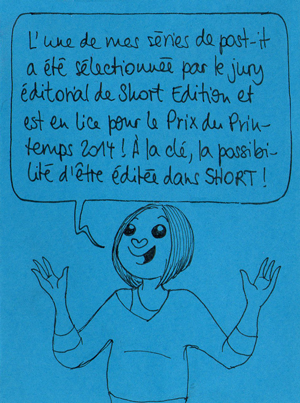 L'une de mes séries de post-it
a été sélectionnée par le jury
éditorial de Short Edition et
est en lice pour le Prix du Prin-
temps 2014 ! À la clé, la possibi-
lité d'être éditée dans SHORT !